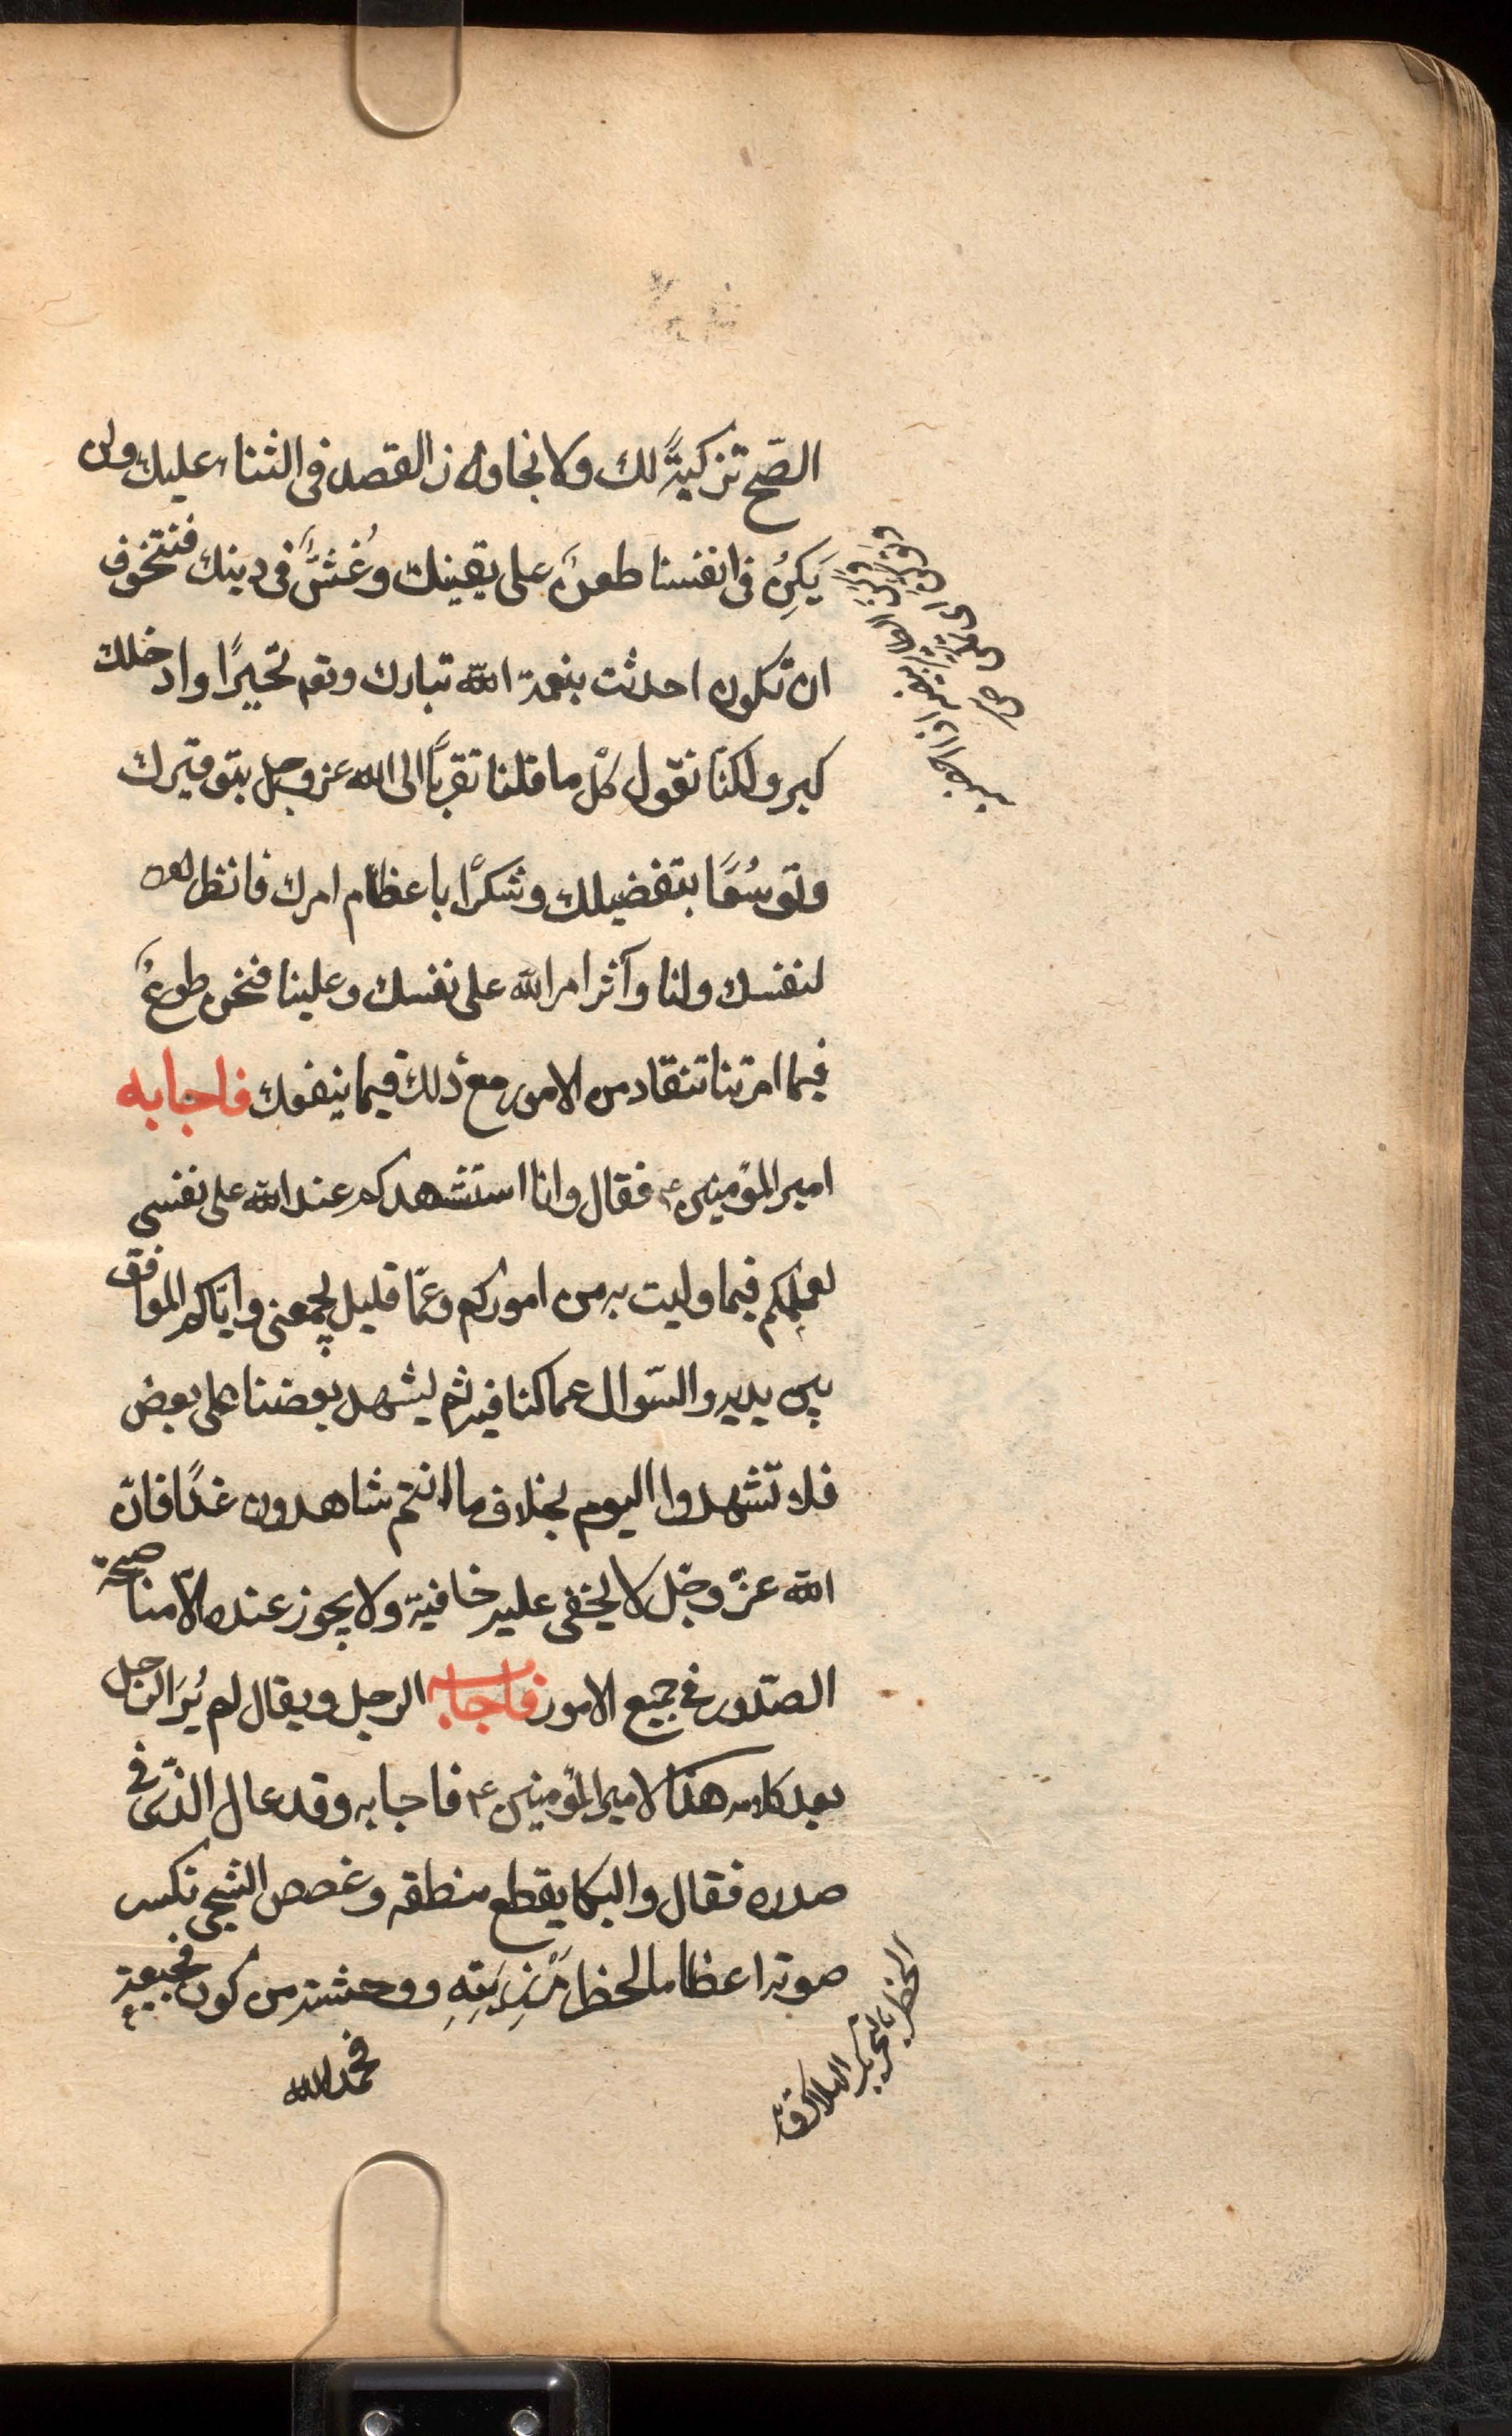 الصّح تزكيةً لك ولا نجاوز القصد فى الثناء عليك ولن
يَكِنُ فى انفسنا طعن على يقينك وغُشَّ فى دينك فنتخوف
ان تكون احدثت بنعمة الله تبارك وتع تجيرًا وادخلك
كبر ولكنّا نقول كلّ ما قلنا تقربًا الى الله عز وجل بتوقيرك
وتوسُعًا بتفضيلك وشكرًا باعظام امرك فانظر
لنفسك ولنا وآثر امر الله على نفسك وعلينا فنحن طوعٌ
فيما امرتنا تنقاد من الامور مع ذلك فيما ينفعك فاجابه
امير المؤمنين ع فقال وانا استشهدكم عند الله على نفسى
لعملكم فيما وليت به من اموركم وعمّا قليل يجمعنى وايّاكم الموافق
بين يديه والسّوال عما كنا فيه ثم يشهد بعضنا على بعض
فلا تشهدوا اليوم بخلاف ما انتم شاهدون غدًا فانّ
الله عزّ وجّل لا يخفى عليه خافية ولا يجوز عنده الّا مناصحة
الصّدور فى جميع الامور فاجابه الرجل ويقال لم يُرَ الرّجل
بعد كلامه هذا لامير المؤمنين ع فاجابه وقد عال الذّى فى
صدره فقال والبكا يقطع منطقه وغصص الشجى تكسر
صوته اعظاما لخطر مَرْزِيَتِهِ ووحشته من كون فجيعته
فحمد الله
الخطر بالتحريك الهلاك ق